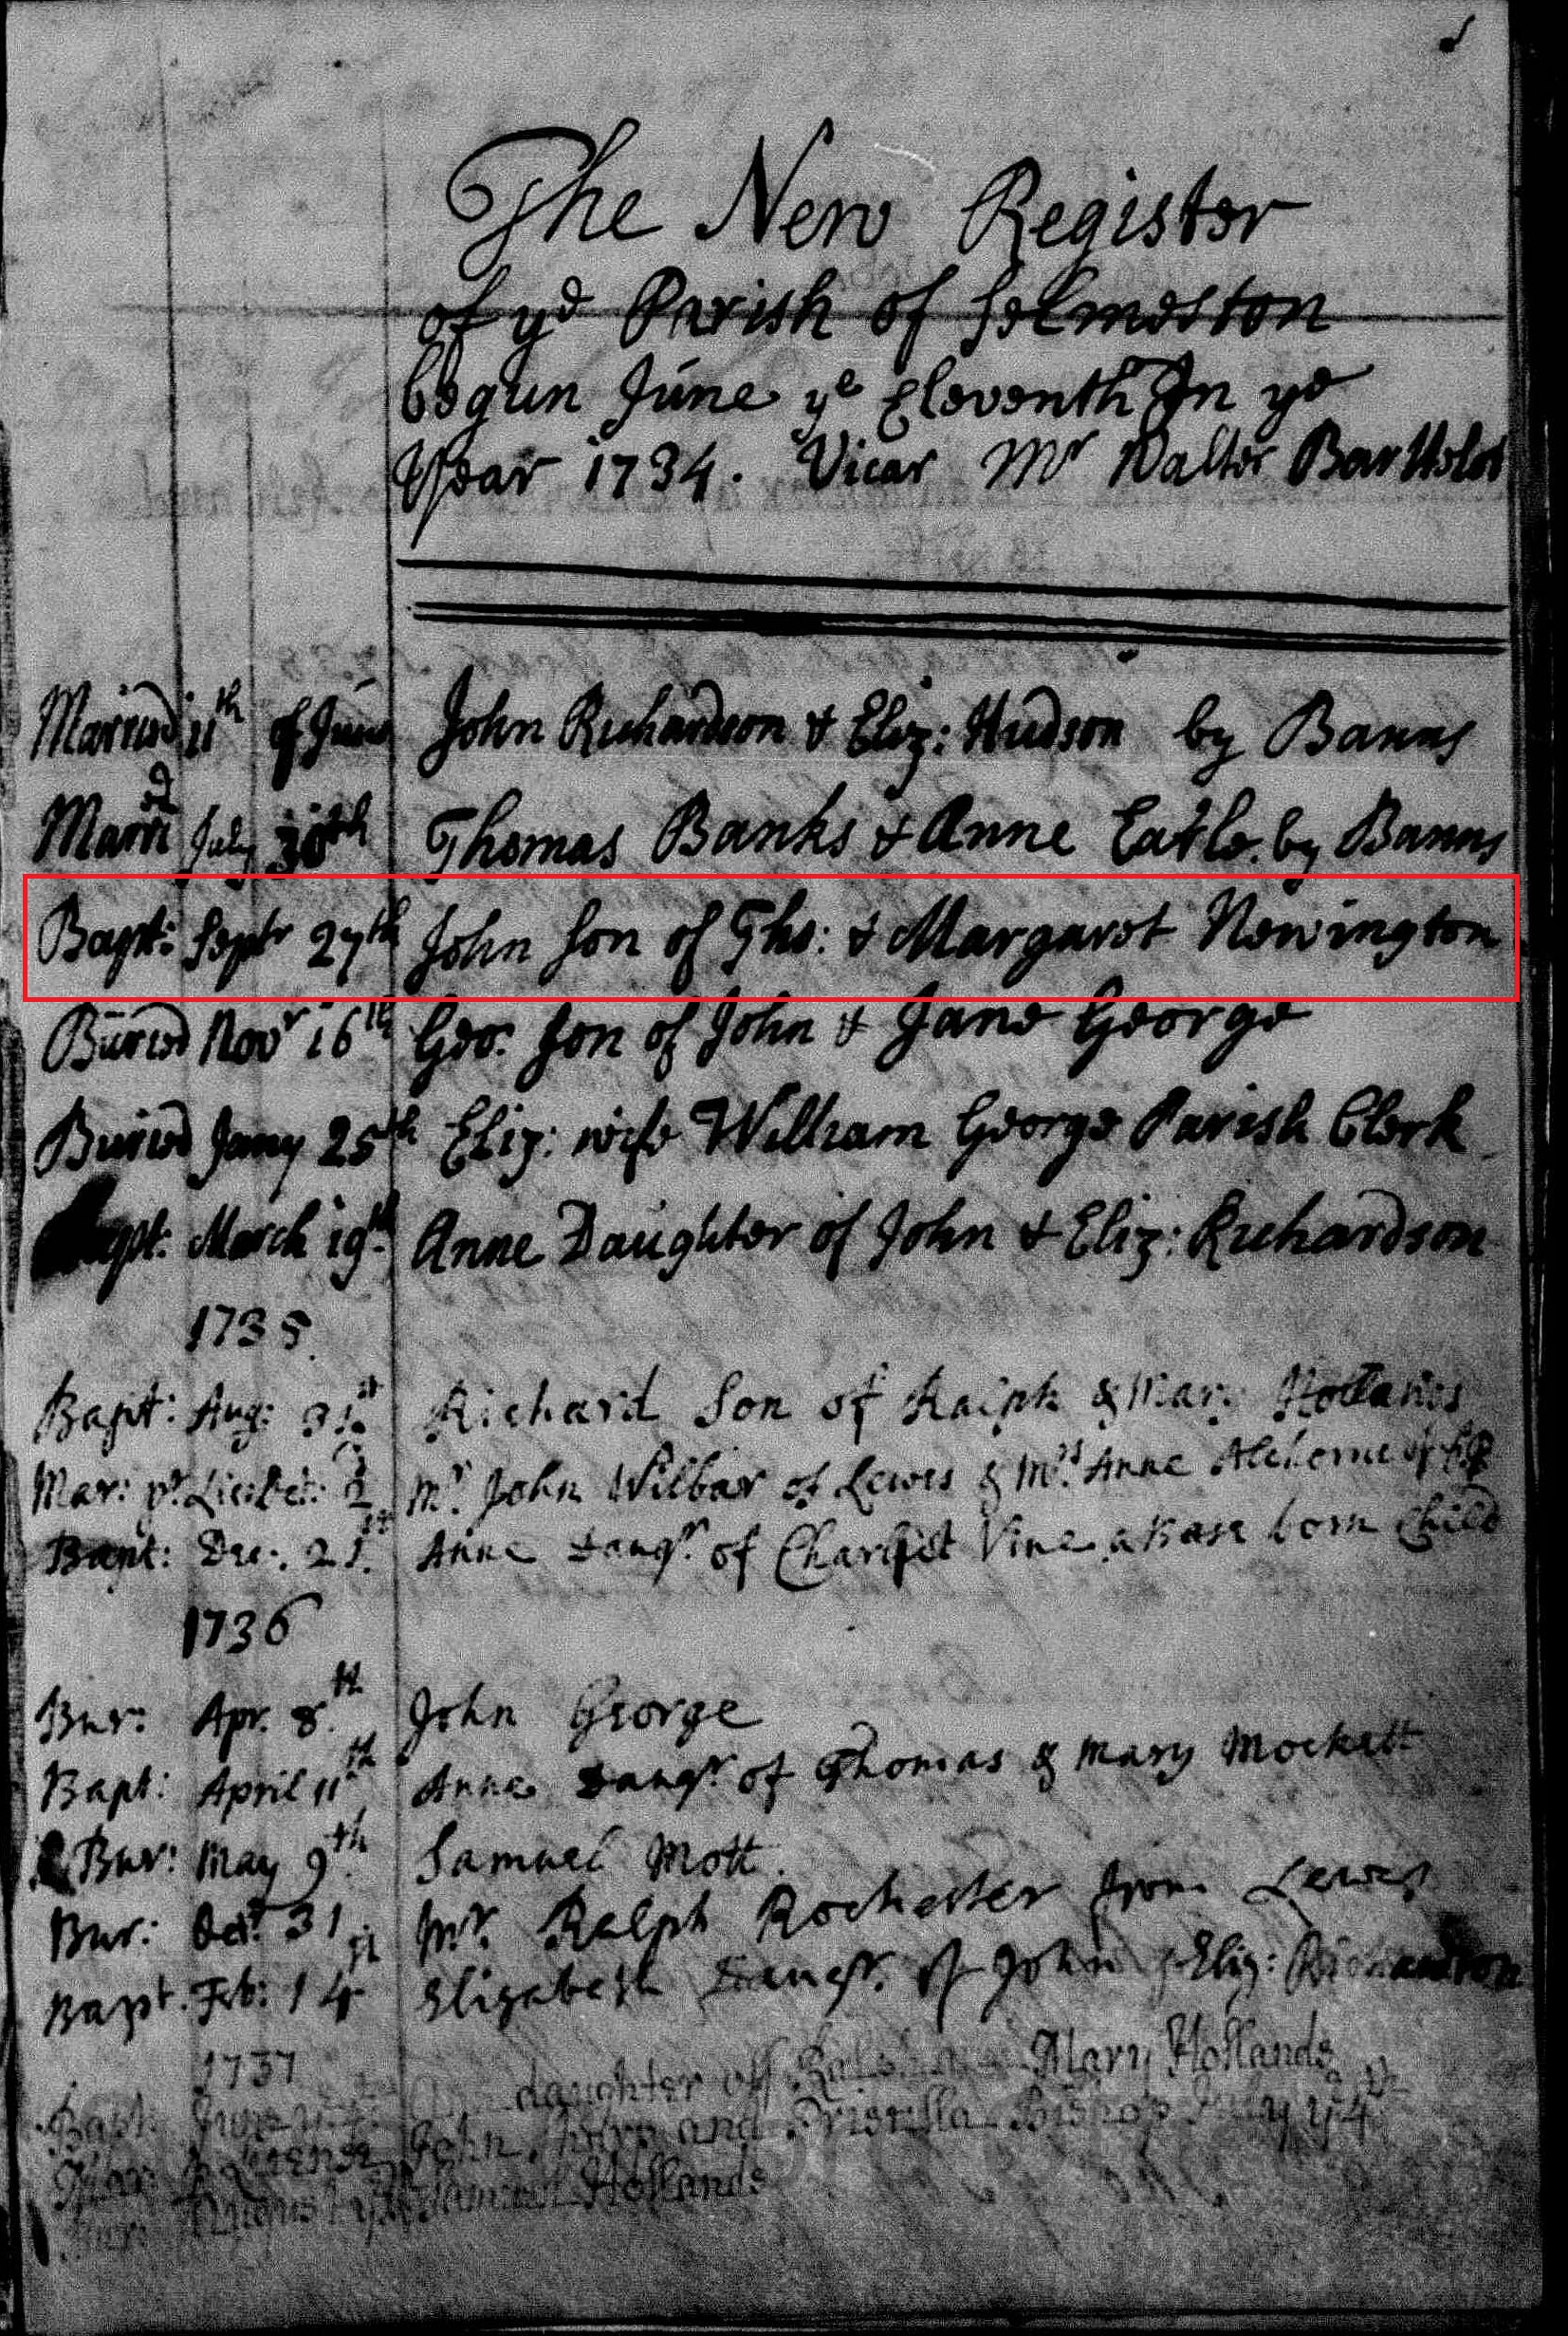 The New Register
of ye Parish of Selmeston
begun June ye Eleventh In ye
Year 1734. Vicar Mr Walter Barthelot
Married 11th of June John Richardson & Eliz: Hudson by Banns
Marrd July 30th Thomas Banks & Anne by Banns
Bapt: Septr 27th John Son of Tho: & Margaret Newington
Buried Novr 16th Geo: Son of John & Jane George
Buried Jany 25th Eliz: wife William George Parish Clerk
Bapt: March 19th Anne Daughter of John & Eliz: Richardson
1735
Bapt: Aug: 31st Richard Son of Ralph & Mary Hollands
Mar: Mr John Wilbar of Lewes & Mrs Anne Alchorne of
Bapt: Dec: 21st Anne Daugr of Vine a Base born Child
1736
Bur: Apr. 8th John George
Bapt: April 11th Anne Daugr of Thomas & Mary Mockett
Bur: May 9th Samuel Mott.
Bur: Oct 31 Mr. Ralph Rochester from Lewes
Bapt. Feb: 14 Elizabeth Daugr. of John & Eliz: Richardson
1737
Bapt June daughter of Mary Hollands
Mar: John and Prisilla Bishop July
August Hollands